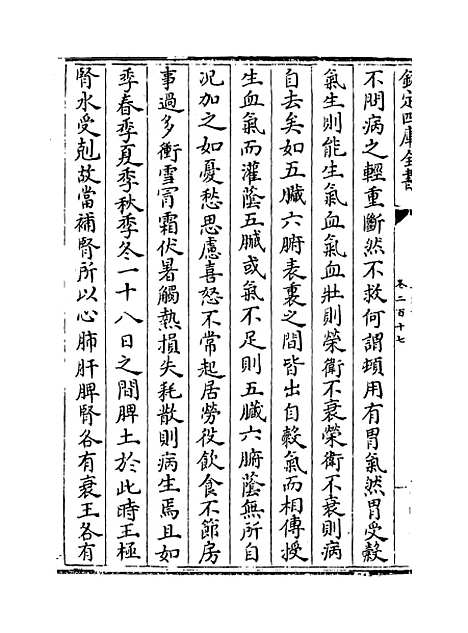 欽定四庫全書
卷二百十七
不問病之輕重斷然不救何謂須用有胃氣然胃受穀
氣生則能生氣血氣血壯則榮衛不衰榮衛不衰則病
自去矣如五臟六腑表裏之間皆出自穀氣而相傳授
生血氣而灌蔭五臟或氣不足則五臟六腑蔭無所自
况加之如憂愁思慮喜怒不常起居勞役飲食不節房
事過多衝雪冐霜伏暑觸熱損失耗散則病生焉且如
季春季夏季秋季冬一十八日之間脾土於此時王極
腎水受剋故當補腎所以心肺肝脾腎各有衰王各有